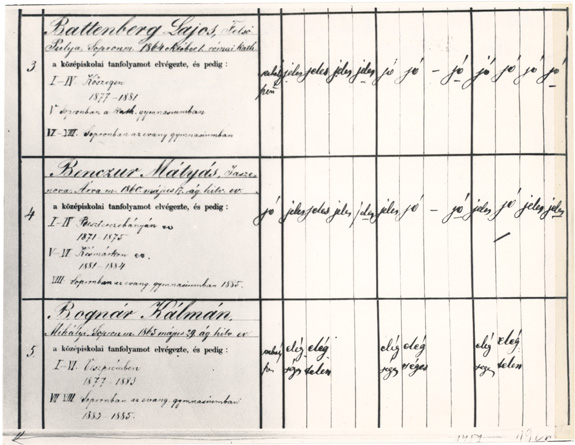 3.
Battenberg Lajos, Felső
Pulya Sopronm. 1864 október 1. római kath.
a középiskolai tanfolyamot elvégezte, és pedig :
I–IV Kőszegen
1877–1881
V Sopronban a kath. gymnasiumban
VI–VIII. Sopronban az evang. gymnasiumban
jeles jeles jeles jeles jó jó – jó jó jó jó jó
4
Benczur Mátyás, Jasze-
nova Árva m. 1860 május ág. hitv. ev
a középiskolai tanfolyamot elvégezte, és pedig :
I–IV Beszterczebányán ev
1871–1875
V–VI Késmárkon ev.
1881–1884
VIII. Sopronban az evang. gymnasiumban 1885.
jó jeles jeles jeles jeles jeles jó – jó jeles jó jeles jeles
5.
Bognár Kálmán,
Mihályi Sopron m. 1865 május ág. hitv. ev
a középiskolai tanfolyamot elvégezte, és pedig :
I–VI. Veszprémben
1877–1883
VII–VIII Sopronban az evang. gymnasiumban
1883–1885.
elég elég elég elég elég elég